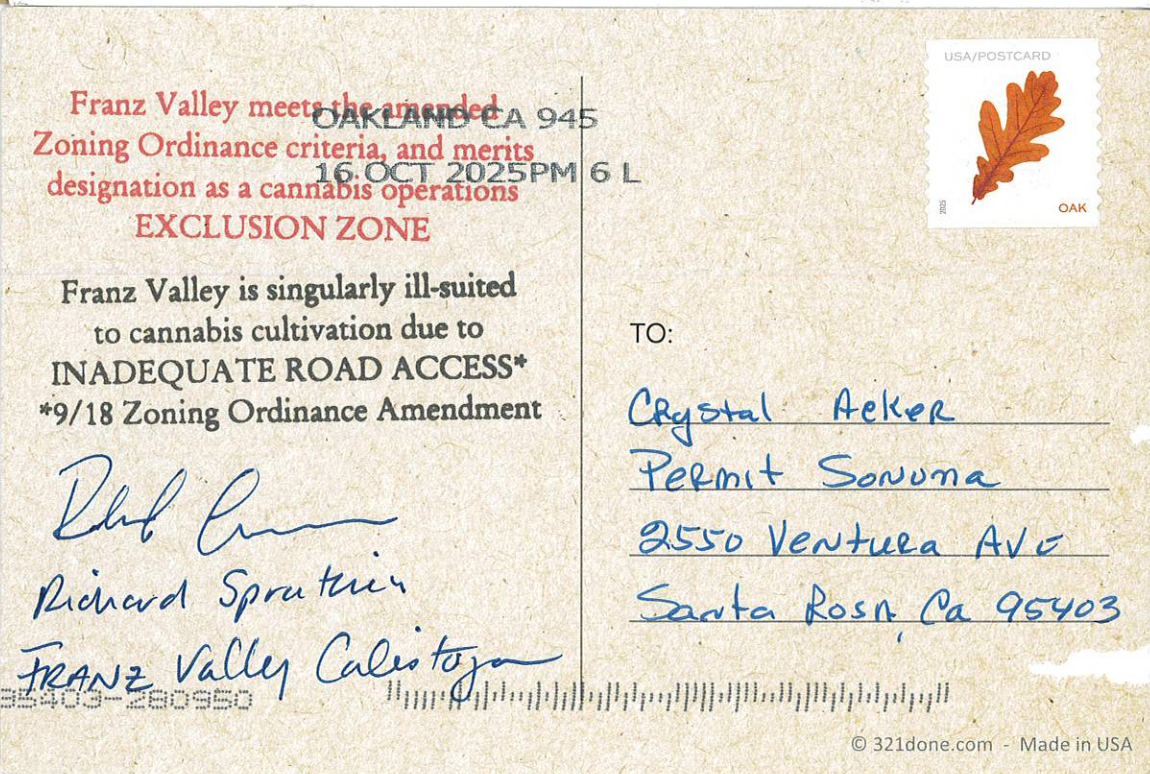 Franz Valley meets the amended
Zoning Ordinance criteria, and merits
designation as a cannabis operations
EXCLUSION ZONE
Franz Valley is singularly ill-suited
to cannabis cultivation due to
INADEQUATE ROAD ACCESS*
*9/18 Zoning Ordinance Amendment
Richard
FRANZ Valley Calistoga
95403-280950
OAKLAND CA 945
16 OCT 2025PM 6 L
USA/POSTCARD
2025
OAK
TO:
Crystal Acker
Permit Sonoma
2550 Ventura Ave
Santa Rosa, Ca 95403
© 321done.com - Made in USA